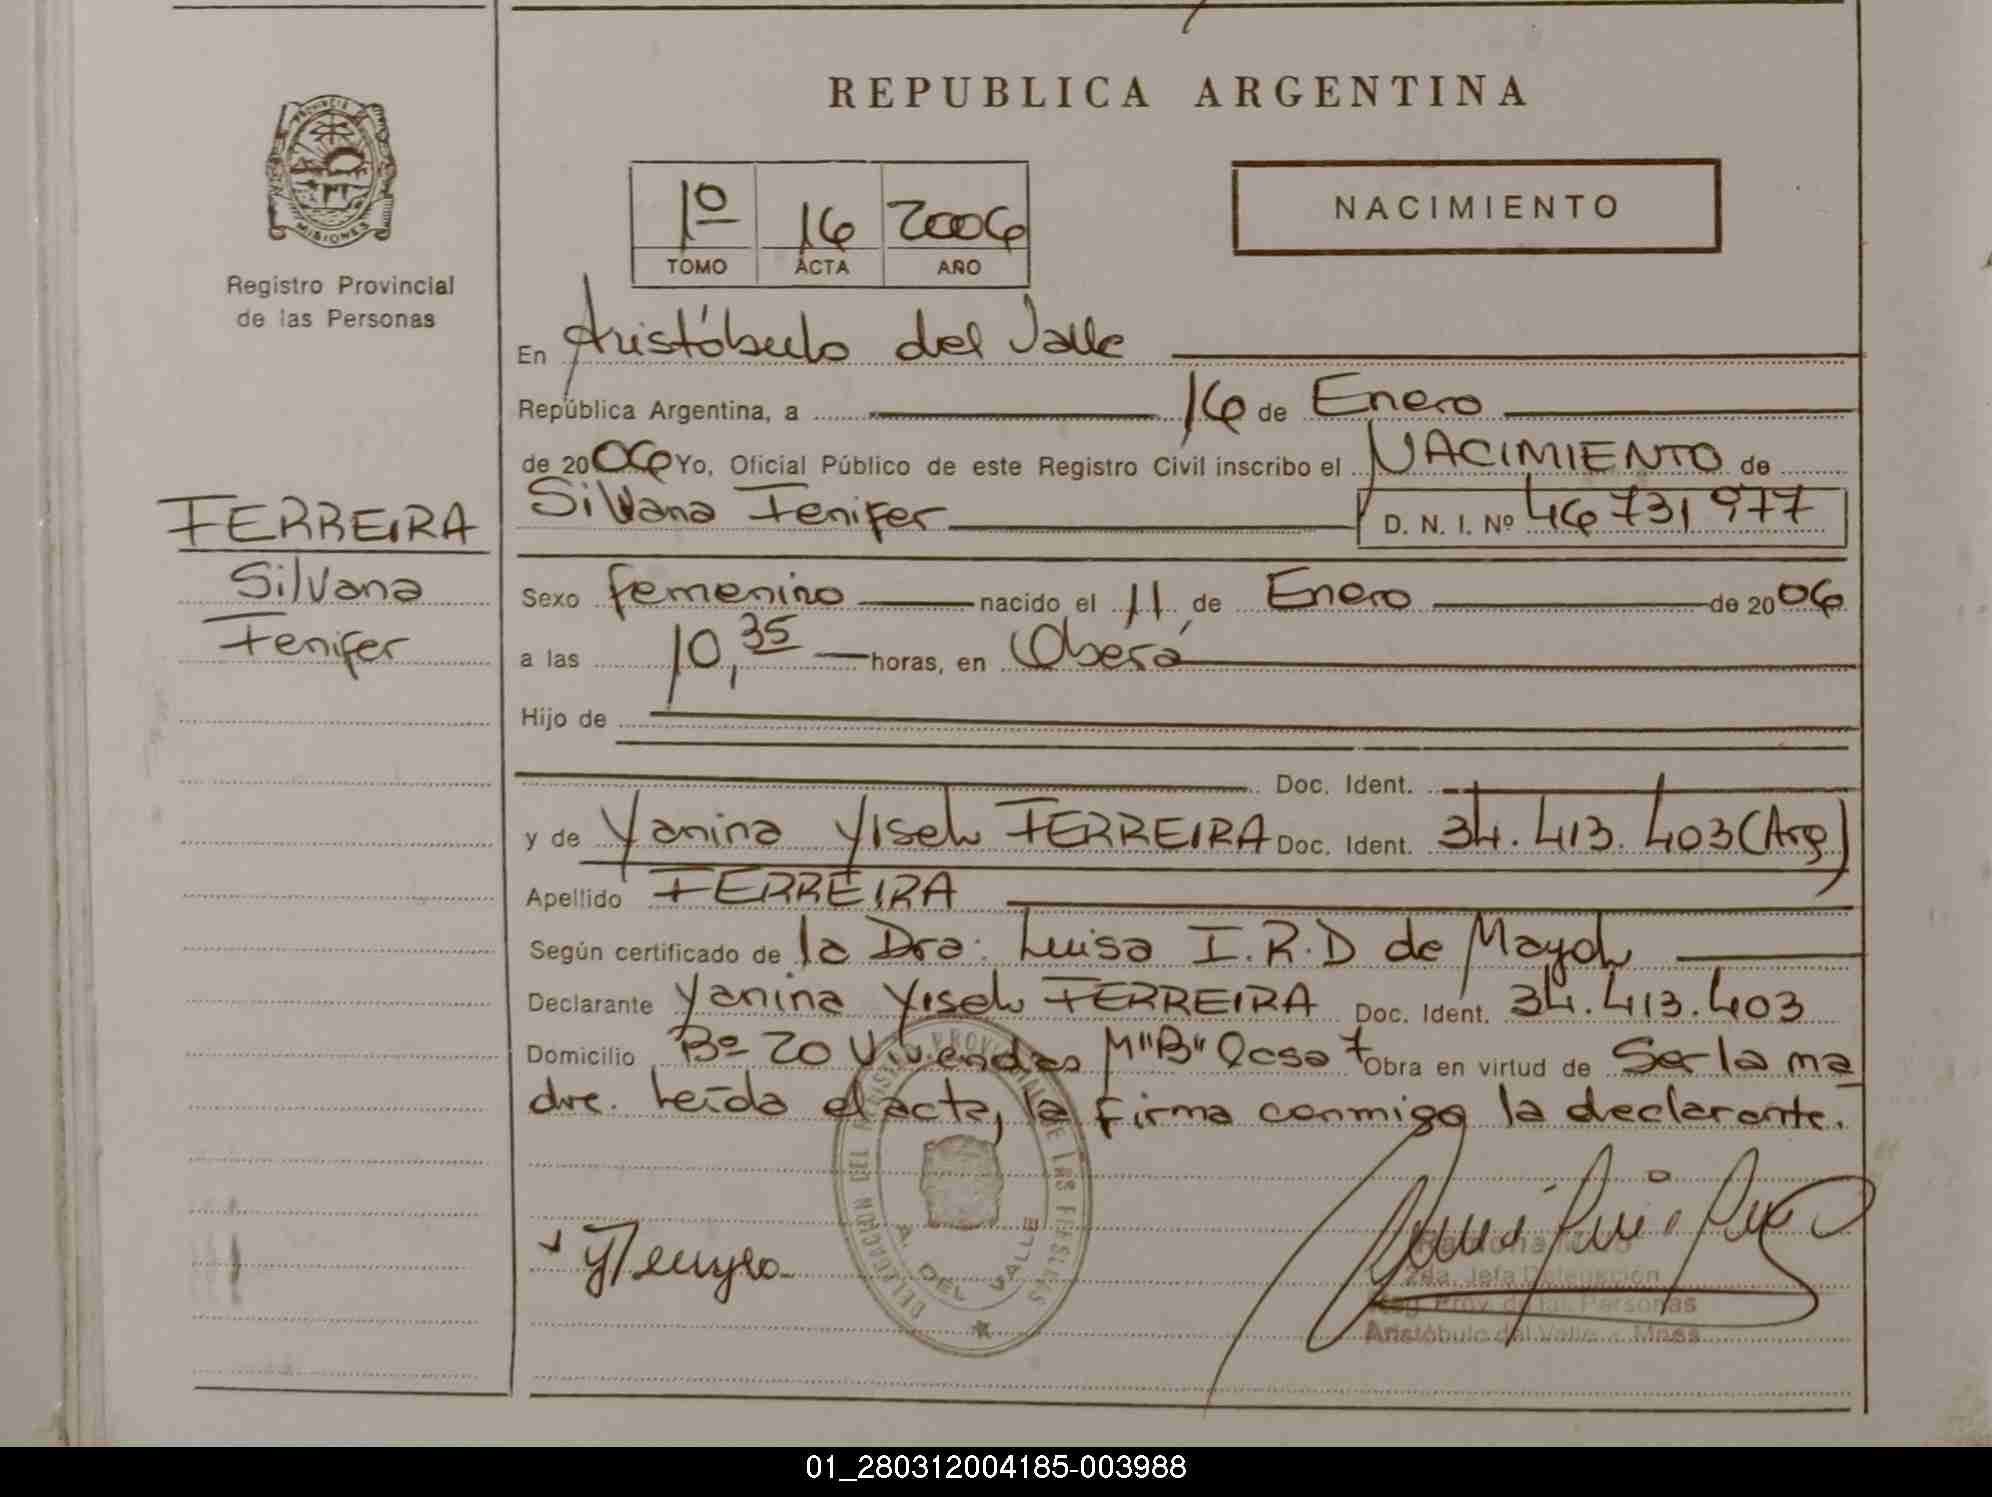 REPUBLICA ARGENTINA
PROVINCIA DE
MISIONES
Registro Provincial
de las Personas
1º 16 2006
TOMO ACTA AÑO
NACIMIENTO
En Aristóbulo del Valle
República Argentina, a 16 de Enero
de 2006 Yo, Oficial Público de este Registro Civil inscribo el NACIMIENTO de
Silvana Jenifer D. N. I. Nº 46731977
FERREIRA
Silvana
Jenifer
Sexo femenino nacido el 11 de Enero de 2006
a las 10,35 horas, en Oberá
Hijo de
Doc. Ident.
y de Yanina Yisel FERREIRA Doc. Ident. 34.413.403 (Arg)
Apellido FERREIRA
Según certificado de la Dra. Luisa I.R.D de Mayol
Declarante Yanina Yisel FERREIRA Doc. Ident. 34.413.403
Domicilio Bº 20 Viviendas M"B" Casa 7 Obra en virtud de Ser la ma
dre. Leída el acta, la firma conmigo la declarante.
DELEGACION DEL REGISTRO PROVINCIAL DE LAS PERSONAS
A. DEL VALLE
Ramona
2da. Jefa Delegación
Reg. Prov. de las Personas
Aristóbulo del Valle - Mnes
01_280312004185-003988